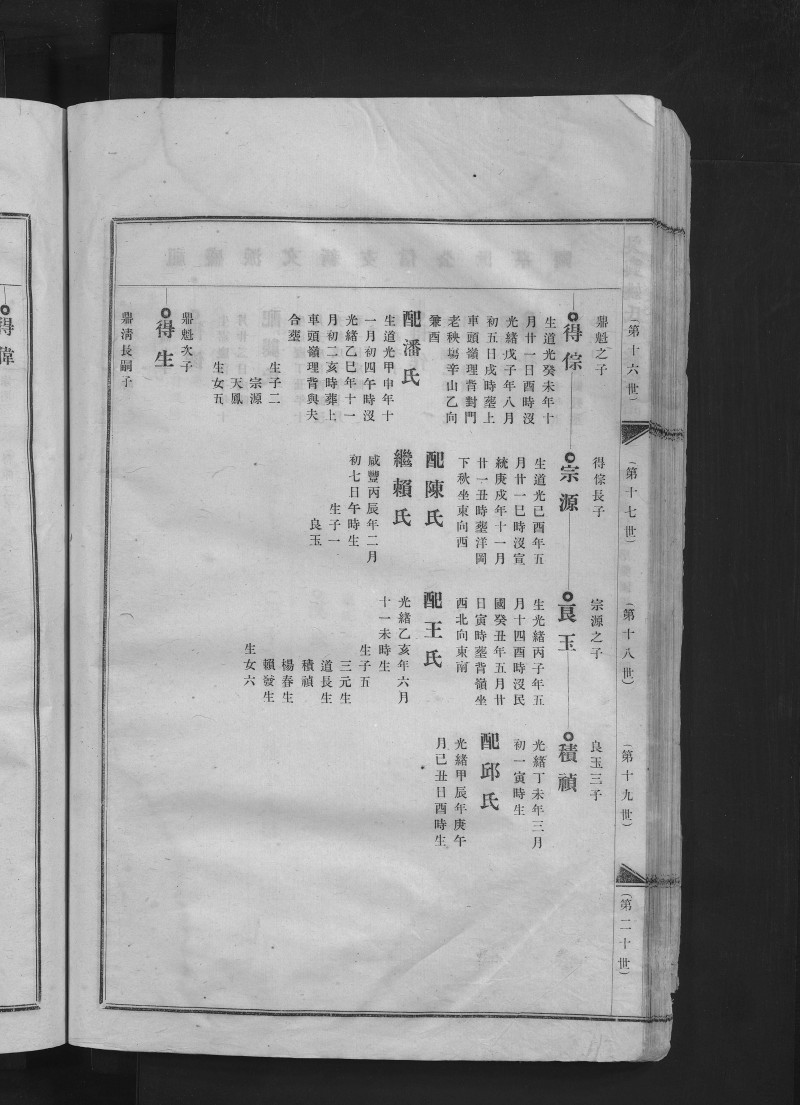 (第十六世)
鼎魁之子
得倧
生道光癸未年十
月廿一日酉時沒
光緒戊子年八月
初五日戌時塟上
車頭嶺理背對門
老秧塲辛山乙向
兼酉
配潘氏
生道光甲申年十
一月初四午時沒
光緒乙巳年十一
月初二亥時葬上
車頭嶺理背與夫
合塟
生子二
宗源
天鳳
生女五
鼎魁次子
得生
鼎淸長嗣子
(第十七世)
得倧長子
宗源
生道光己酉年五
月廿一巳時沒宣
統庚戌年十一月
廿一丑時塟洋岡
下秋坐東向西
配陳氏
繼賴氏
咸豐丙辰年二月
初七日午時生
生子一
良玉
(第十八世)
宗源之子
良玉
生光緒丙子年五
月十四酉時沒民
國癸丑年五月廿
日寅時塟背嶺坐
西北向東南
配王氏
光緒乙亥年六月
十一未時生
生子五
三元生
道長生
積禎
楊春生
賴發生
生女六
(第十九世)
良玉三子
積禎
光緒丁未年三月
初一寅時生
配邱氏
光緒甲辰年庚午
月己丑日酉時生
(第二十世)
得偉